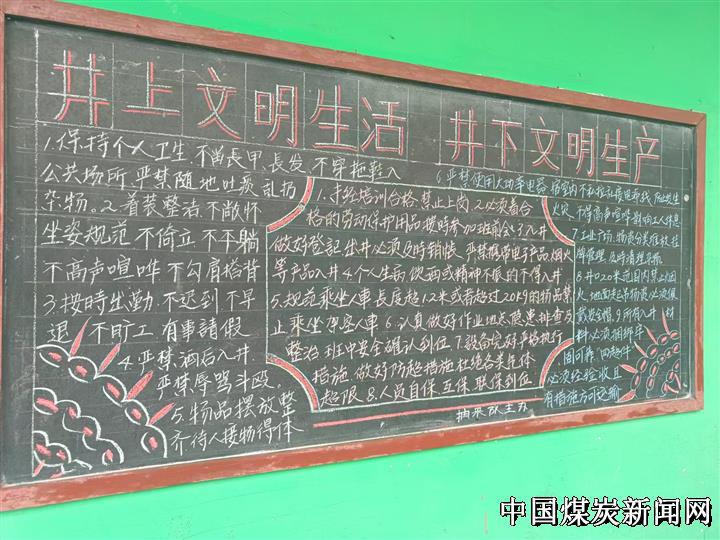 井上文明生活 井下文明生产
1.保持个人卫生,不留長甲、長发,不穿拖鞋入
公共场所,严禁随地吐痰,乱扔
杂物。2.着装整洁,不敞怀
坐姿规范 不倚立 不平躺
不高声喧哗 不勾肩搭背
3.按時出勤,不迟到 不早
退 不旷工 有事請假
4.严禁酒后入井
严禁辱骂斗殴。
5.物品摆放整
齐待人接物得体
1.未经培训合格,禁止上岗 2.必须着合
格的劳动保护用品 按時参加班前会 3.入井
做好登記 出井必须及時销 严禁携带电子产品 烟火
等产品入井 4.个人生病 饮酒或精神不振的不得入井
5.规范乘坐人車 長度超1.2米或者超过20Kg的物品禁
止乘坐架空人車 6.认真做好作业地点隐患排查及
整治 班中安全确认到位 7.设备完好 严格执行
措施 做好防超措施 杜绝各类气体
超限 8.人员自保 互保 联保到位
6.严禁使用大功率电器 宿室内不私拉乱接电线
火灾 不得高声喧哗影响工人休息
7.工业广场,物资分类堆放挂
牌管理,及時清理
8.井口20米范围内禁止烟
火 地面起吊物资必须佩
戴安全帽 9.所有入井 材
料必须捆绑牢
固可靠,四超件
必须经验收且
有措施方可运输
抽采队主办
中国煤炭新闻网